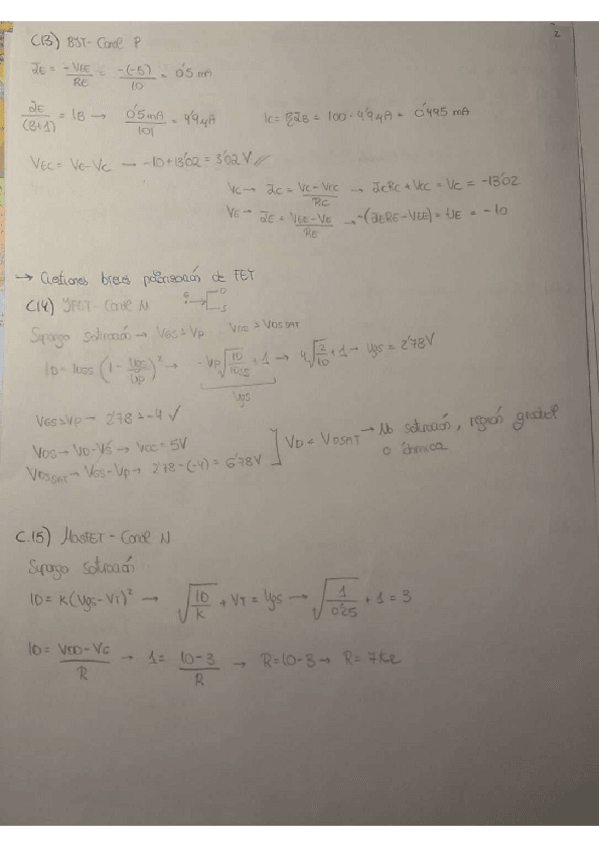 2
C.13) BJT - Canal P
IE = -VEE/RE = -(-5)/10 = 0'5 mA
IE/(B+1) = IB → 0'5mA/101 = 4'9 µA IC = BIB = 100·4'9µA = 0'495 mA
VEC = VE - VC → -10 + 13'02 = 3'02 V
VC → IC = VC - VCC/RC → ICRC + VCC = VC = -13'02
VE → IE = VEE - VE/RE → -(IERE - VEE) = VE = -10
→ Cuestiones breves polarización de FET
C.14) JFET - Canal N G D S
Supongo saturación → VGS > VP VDS > VDSSAT
ID = IDSS (1 - VGS/VP)² → -VP√ID/IDSS + 1 → 4√2/10 + 1 → VGS = 2'78V
VGS
VGS > VP → 2'78 > -4 ✓
VDS → VD - VS → VCC = 5V
VDSSAT → VGS - VP → 2'78 - (-4) = 6'78V ] VD < VDSAT → No saturación, región gradual
o óhmica
C.15) MOSFET - Canal N
Supongo saturación
ID = K(VGS - VT)² → √ID/K + VT = VGS → √1/0'25 + 1 = 3
ID = VDD - VG/R → 1 = 10 - 3/R → R = 10 - 3 → R = 7kΩ